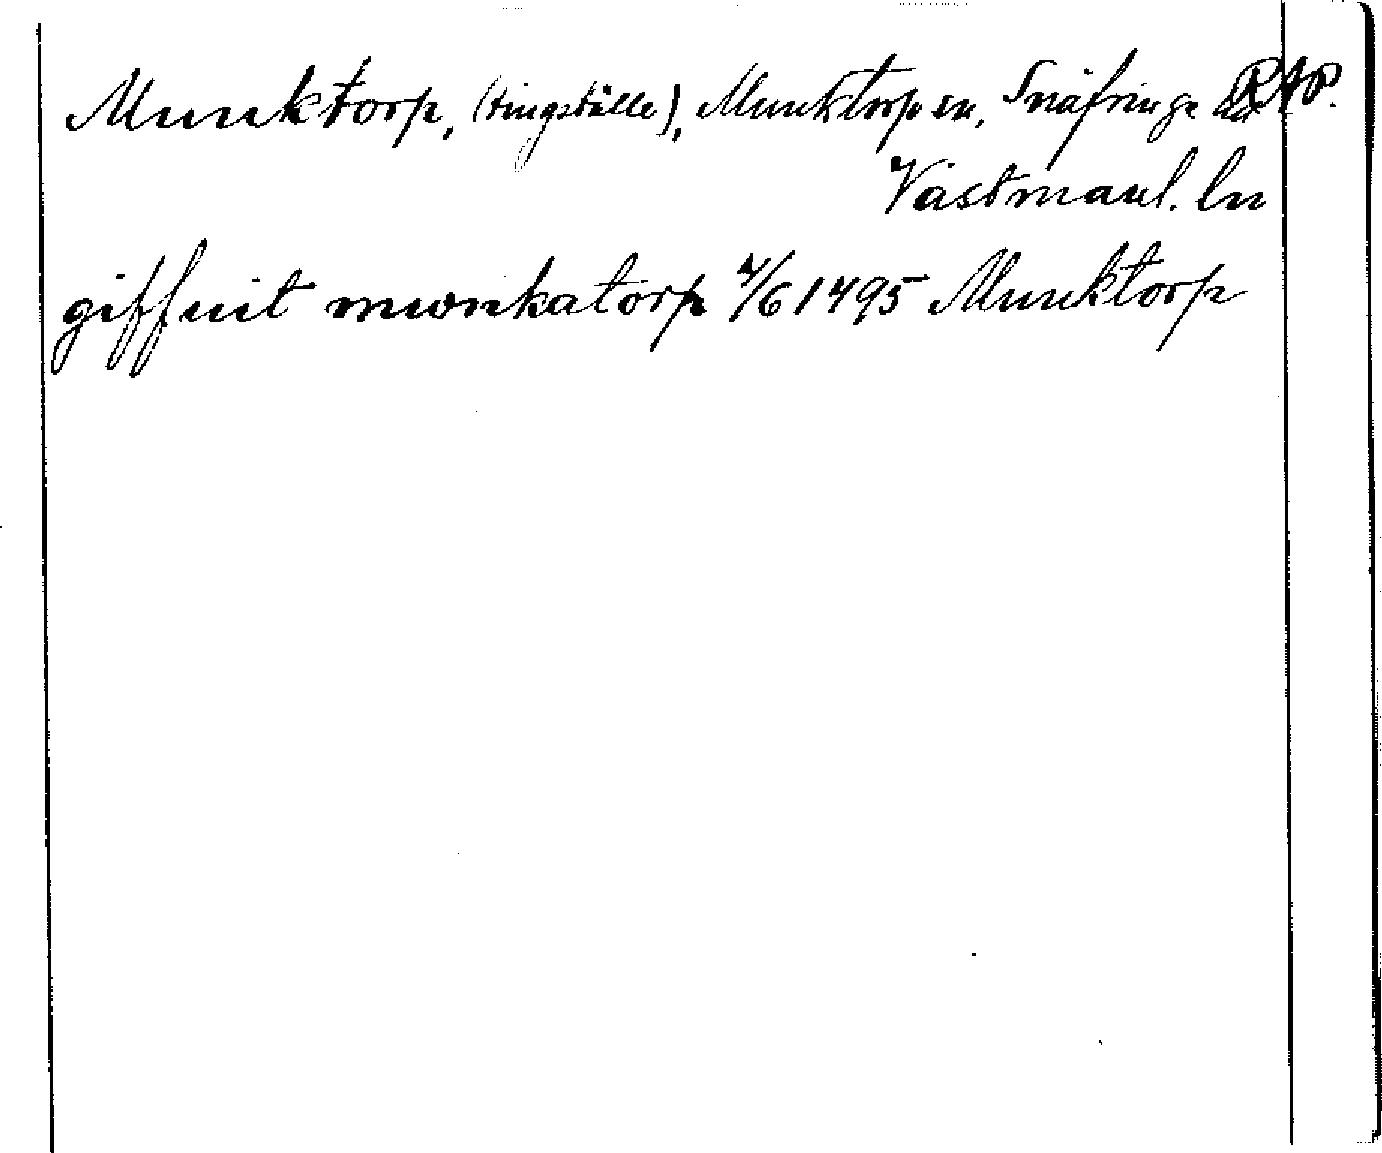 Munktorp, (tingställe), Munktorp sn, Snäfringe hd RAP.
Västmanl. ln
giffuit mwnkatorp 4/6 1495 Munktorp